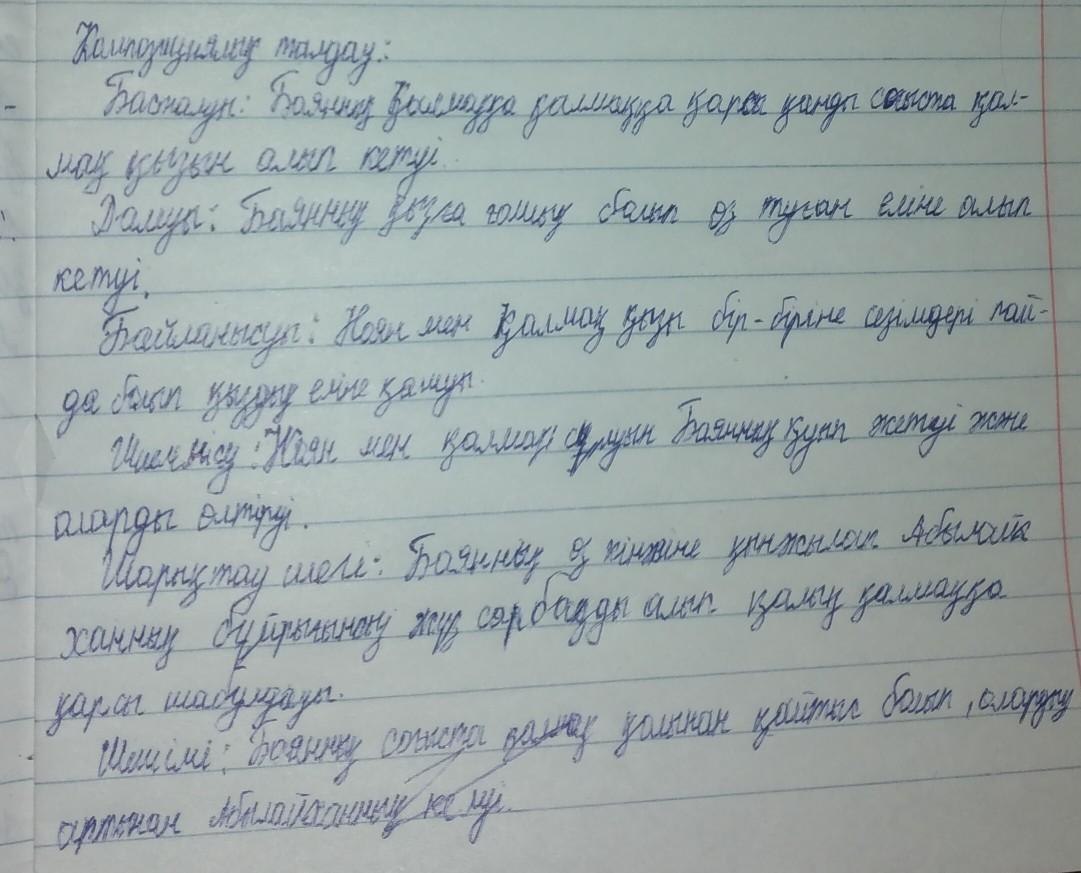 Композициялық талдау:
Басталуы: Баянның қалмаққа қарсы қанды соғыста қал-
мақ қызын алып кетуі.
Дамуы: Баянның қызға ғашық болып өз туған еліне алып
кетуі.
Байланысуы: Ноян мен Қалмақ қызы бір-біріне сезімдері пай-
да болып қыздың еліне қашуы.
Шиеленісу: Ноян мен қалмақ Баянның қуып жетуі және
оларды өлтіруі.
Шарықтау шегі: Баянның өз Абылай
ханның бұйрығынсыз жүз сарбазды алып қалың қалмаққа
қарсы шабулдауы.
Шешімі: Баянның соғыста қалмақ қолынан қайтыс болып, олардың
артынан Абылайханның келуі.